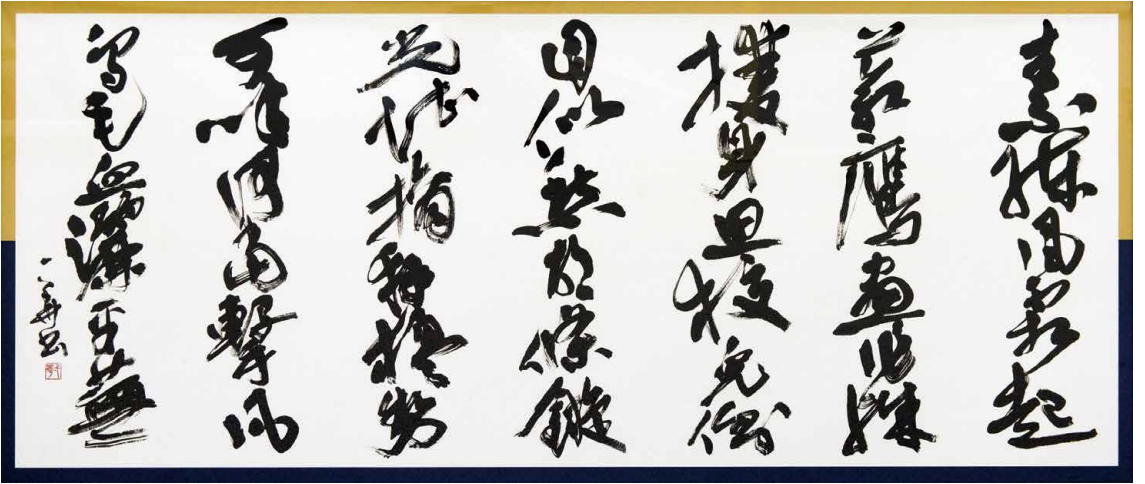 素練風霜起
蒼鷹畫作殊
㩳身思狡兔側
目似愁胡絛鏇
光堪摘軒楹勢
可呼何當擊凡
鳥毛血灑平蕪